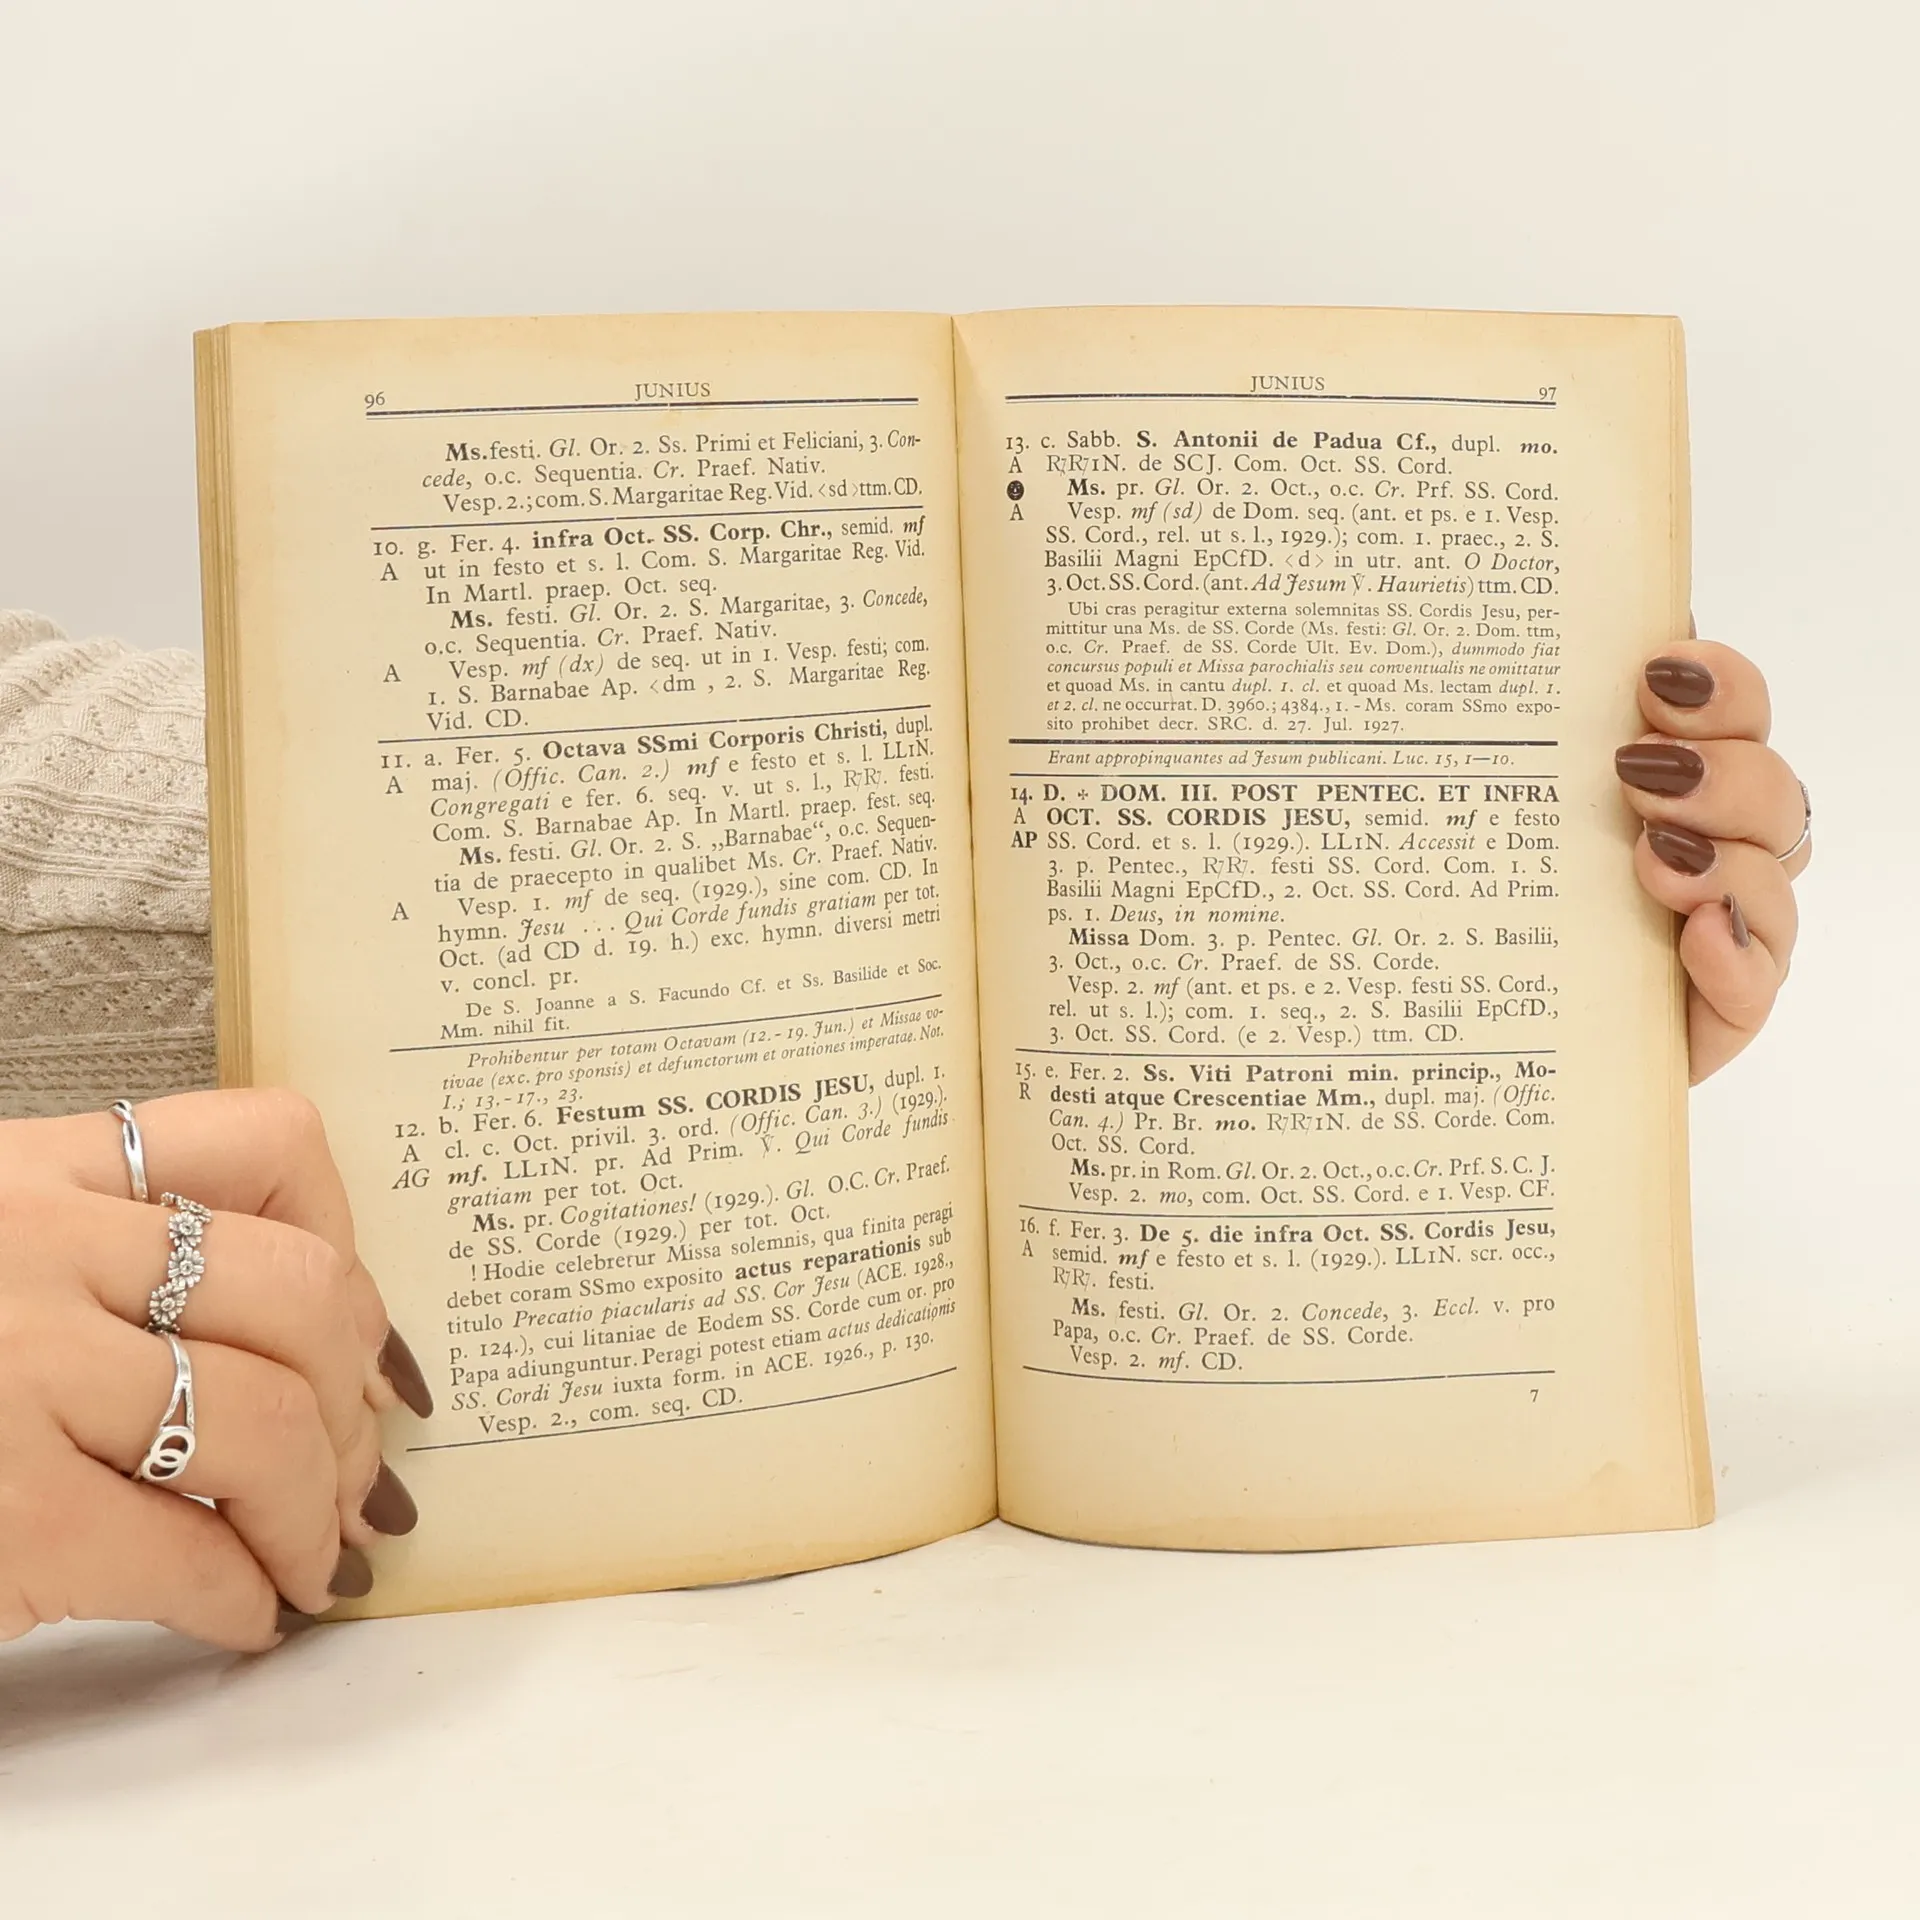 96 JUNIUS
Ms. festi. Gl. Or. 2. Ss. Primi et Feliciani, 3. Con-
cede, o.c. Sequentia. Cr. Praef. Nativ.
Vesp. 2.; com. S. Margaritae Reg. Vid. <sd> ttm. CD.
10. g. Fer. 4. infra Oct. SS. Corp. Chr., semid. mf
A ut in festo et s. l. Com. S. Margaritae Reg. Vid.
In Martl. praep. Oct. seq.
Ms. festi. Gl. Or. 2. S. Margaritae, 3. Concede,
o.c. Sequentia. Cr. Praef. Nativ.
A Vesp. mf (dx) de seq. ut in 1. Vesp. festi; com.
1. S. Barnabae Ap. <dm , 2. S. Margaritae Reg.
Vid. CD.
11. a. Fer. 5. Octava SSmi Corporis Christi, dupl.
A maj. (Offic. Can. 2.) mf e festo et s. l. LL1N.
Congregati e fer. 6. seq. v. ut s. l., R̷R̷. festi.
Com. S. Barnabae Ap. In Martl. praep. fest. seq.
Ms. festi. Gl. Or. 2. S. „Barnabae“, o.c. Sequen-
tia de praecepto in qualibet Ms. Cr. Praef. Nativ.
A Vesp. 1. mf de seq. (1929.), sine com. CD. In
hymn. Jesu ... Qui Corde fundis gratiam per tot.
Oct. (ad CD d. 19. h.) exc. hymn. diversi metri
v. concl. pr.
De S. Joanne a S. Facundo Cf. et Ss. Basilide et Soc.
Mm. nihil fit.
Prohibentur per totam Octavam (12.-19. Jun.) et Missae vo-
tivae (exc. pro sponsis) et defunctorum et orationes imperatae. Not.
I.; 13.-17., 23.
12. b. Fer. 6. Festum SS. CORDIS JESU, dupl. 1.
A cl. c. Oct. privil. 3. ord. (Offic. Can. 3.) (1929.).
AG mf. LL1N. pr. Ad Prim. V̷. Qui Corde fundis
gratiam per tot. Oct.
Ms. pr. Cogitationes! (1929.). Gl. O.C. Cr. Praef.
de SS. Corde (1929.) per tot. Oct.
! Hodie celebretur Missa solemnis, qua finita peragi
debet coram SSmo exposito actus reparationis sub
titulo Precatio piacularis ad SS. Cor Jesu (ACE. 1928.,
p. 124.), cui litaniae de Eodem SS. Corde cum or. pro
Papa adiunguntur. Peragi potest etiam actus dedicationis
SS. Cordi Jesu iuxta form. in ACE. 1926., p. 130.
Vesp. 2., com. seq. CD.
JUNIUS 97
13. c. Sabb. S. Antonii de Padua Cf., dupl. mo.
A R̷R̷1N. de SCJ. Com. Oct. SS. Cord.
Ms. pr. Gl. Or. 2. Oct., o.c. Cr. Prf. SS. Cord.
A Vesp. mf (sd) de Dom. seq. (ant. et ps. e 1. Vesp.
SS. Cord., rel. ut s. l., 1929.); com. 1. praec., 2. S.
Basilii Magni EpCfD. <d> in utr. ant. O Doctor,
3. Oct. SS. Cord. (ant. Ad Jesum V̷. Haurietis) ttm. CD.
Ubi cras peragitur externa solemnitas SS. Cordis Jesu, per-
mittitur una Ms. de SS. Corde (Ms. festi: Gl. Or. 2. Dom. ttm,
o.c. Cr. Praef. de SS. Corde Ult. Ev. Dom.), dummodo fiat
concursus populi et Missa parochialis seu conventualis ne omittatur
et quoad Ms. in cantu dupl. 1. cl. et quoad Ms. lectam dupl. 1.
et 2. cl. ne occurrat. D. 3960.; 4384., 1. - Ms. coram SSmo expo-
sito prohibet decr. SRC. d. 27. Jul. 1927.
Erant appropinquantes ad Jesum publicani. Luc. 15, 1—10.
14. D. ✢ DOM. III. POST PENTEC. ET INFRA
A OCT. SS. CORDIS JESU, semid. mf e festo
AP SS. Cord. et s. l. (1929.). LL1N. Accessit e Dom.
3. p. Pentec., R̷R̷. festi SS. Cord. Com. 1. S.
Basilii Magni EpCfD., 2. Oct. SS. Cord. Ad Prim.
ps. 1. Deus, in nomine.
Missa Dom. 3. p. Pentec. Gl. Or. 2. S. Basilii,
3. Oct., o.c. Cr. Praef. de SS. Corde.
Vesp. 2. mf (ant. et ps. e 2. Vesp. festi SS. Cord.,
rel. ut s. l.); com. 1. seq., 2. S. Basilii EpCfD.,
3. Oct. SS. Cord. (e 2. Vesp.) ttm. CD.
15. e. Fer. 2. Ss. Viti Patroni min. princip., Mo-
R desti atque Crescentiae Mm., dupl. maj. (Offic.
Can. 4.) Pr. Br. mo. R̷R̷1N. de SS. Corde. Com.
Oct. SS. Cord.
Ms. pr. in Rom. Gl. Or. 2. Oct., o.c. Cr. Prf. S. C. J.
Vesp. 2. mo, com. Oct. SS. Cord. e 1. Vesp. CF.
16. f. Fer. 3. De 5. die infra Oct. SS. Cordis Jesu,
A semid. mf e festo et s. l. (1929.). LL1N. scr. occ.,
R̷R̷. festi.
Ms. festi. Gl. Or. 2. Concede, 3. Eccl. v. pro
Papa, o.c. Cr. Praef. de SS. Corde.
Vesp. 2. mf. CD.
7